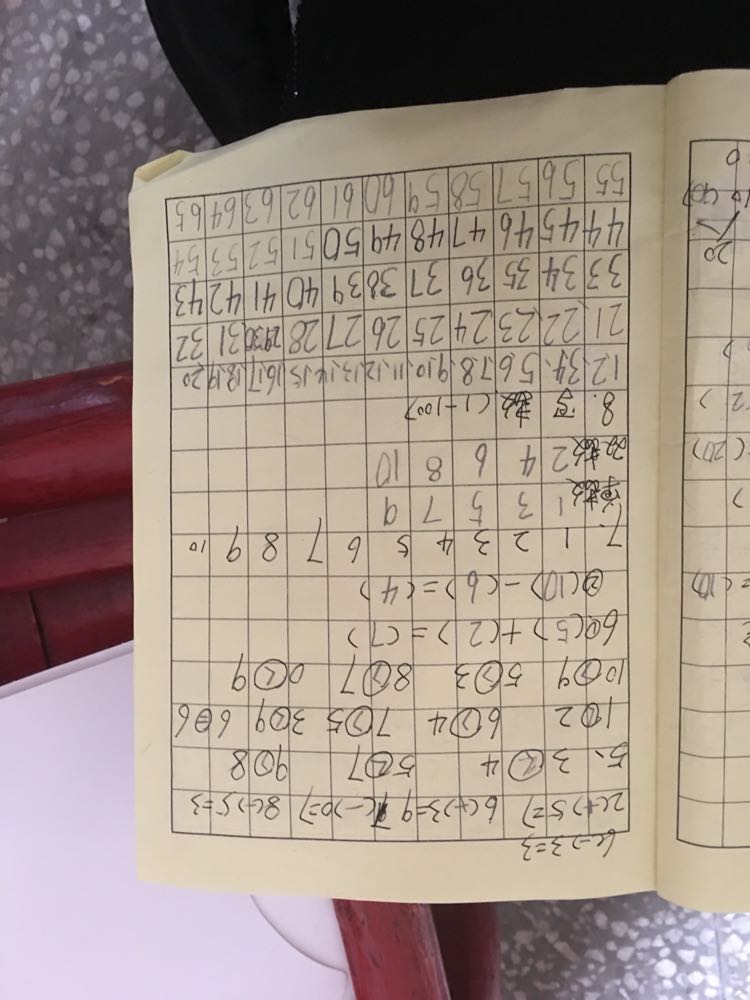 6(-)3=3
2(+)5=7 6(+)3=9 7(-)0=7 8(-)5=3
5、3<4 5<7 9>8
1<2 6>4 7>5 3<9 6=6
10>9 5>3 8>7 0<9
6①(5)+(2)=(7)
②(10)-(6)=(4)
7、1 2 3 4 5 6 7 8 9 10
单数 1 3 5 7 9
双数 2 4 6 8 10
8.写数(1-100)
1 2、3 4、5 6、7、8、9、10、11、12、13、14、15、16、17、18、19、20
21 22 23 24 25 26 27 28 29 30 31 32
33 34 35 36 37 38 39 40 41 42 43
44 45 46 47 48 49 50 51 52 53 54
55 56 57 58 59 60 61 62 63 64 65
=(10)
(20)
2)
20